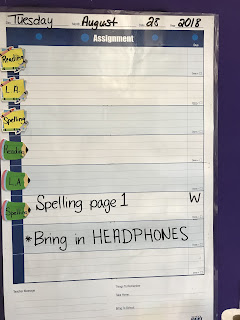 Tuesday August 28 2018
Assignment
Reading
L.A.
Spelling
Reading
L.A.
Spelling Spelling page 1 W
*Bring in HEADPHONES